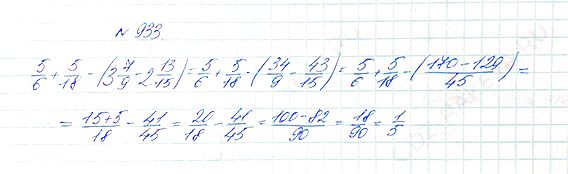 № 933
5/6 + 5/18 - (3 7/9 - 2 13/15) = 5/6 + 5/18 - (34/9 - 43/15) = 5/6 + 5/18 - (170-129/45) =
= 15+5/18 - 41/45 = 20/18 - 41/45 = 100-82/90 = 18/90 = 1/5